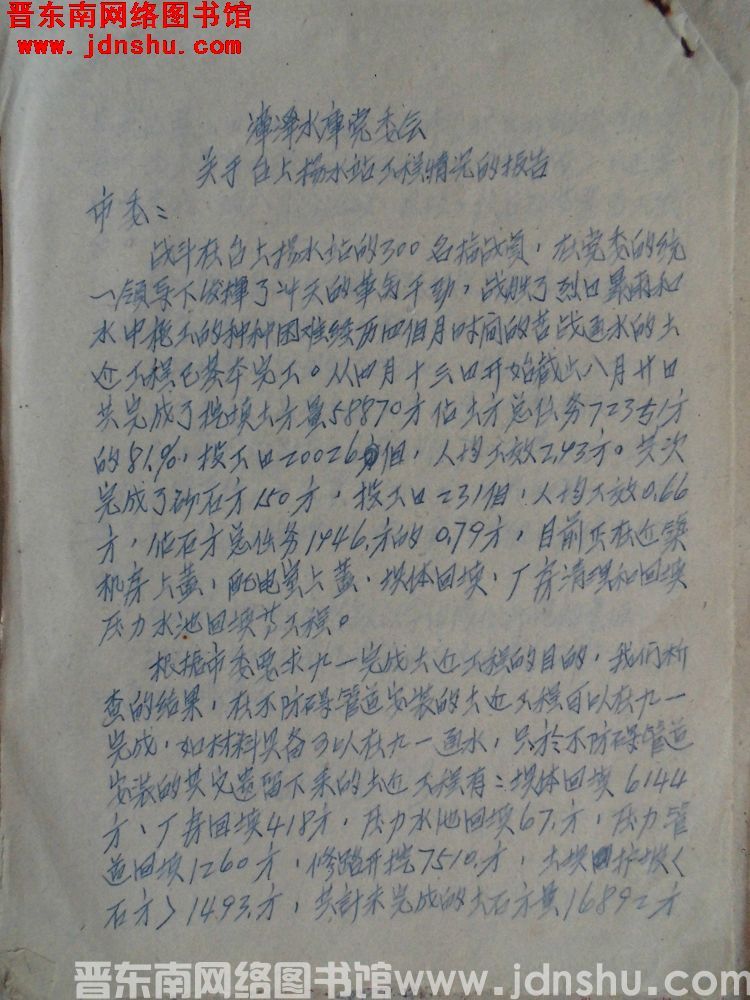 晋东南网络图书馆
www.jdnshu.com
漳泽水库党委会
关于台上扬水站工程情况的报告
市委:
战斗在台上扬水站的300名指战员,在党委的统
一领导下发揮了冲天的革命干劲,战胜了烈日暴雨和
水中挖土的种种困难经历四個月时间的苦战通水的土
建工程已基本完工。从四月十三日开始截止八月廿日
共完成了挖填土方量58870方佔土方总任务72351方
的81.%,投工日20026個,人均工效2.93方。其次
完成了砂石方150方,投工日231個,人均工效0.66
方,佔石方总任务1946.方的0.79方,目前正在建築
机房上盖,配电室上盖,坝体回填,厂房清理和回填
压力水池回填等工程。
根据市委要求九一完成土建工程的目的,我们检
查的结果,在不防碍管道安装的土建工程可以在九一
完成,如材料具备可以在九一通水,只於不防碍管道
安装的其它遗留下来的土建工程有:坝体回填6144
方,厂房回填418方,压力水池回填67.方,压力管
道回填1260方,修路开挖7510.方,土坝护坡<
石方>1493.方,共計未完成的土石方量16892方
晋东南网络图书馆www.jdnshu.com